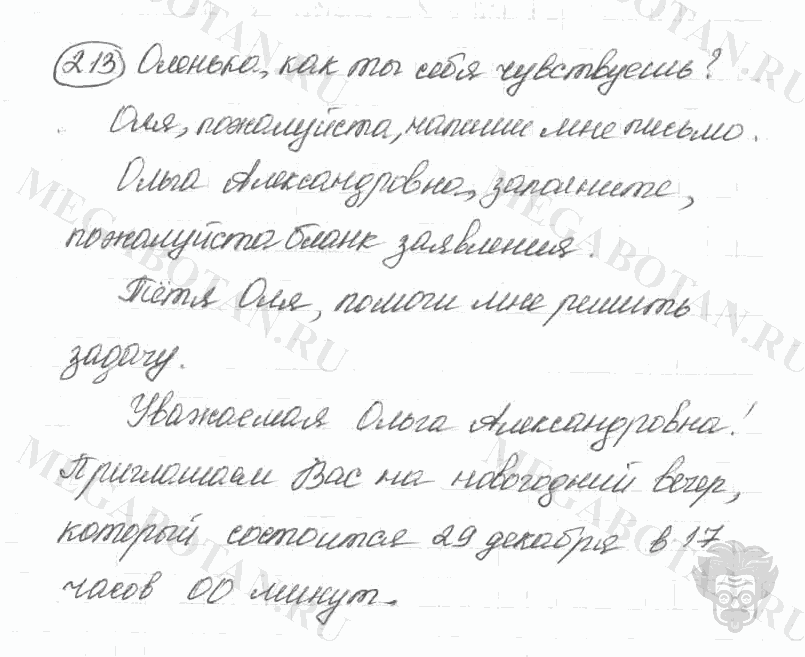 213 Оленька, как ты себя чувствуешь?
Оля, пожалуйста, напиши мне письмо.
Ольга Александровна, заполните,
пожалуйста бланк заявления.
Тётя Оля, помоги мне решить
задачу.
Уважаемая Ольга Александровна!
Приглашаем Вас на новогодний вечер,
который состоится 29 декабря в 17
часов 00 минут.
MEGABOTAN.RU
MEGABOTAN.RU
MEGABOTAN.RU
MEGABOTAN.RU